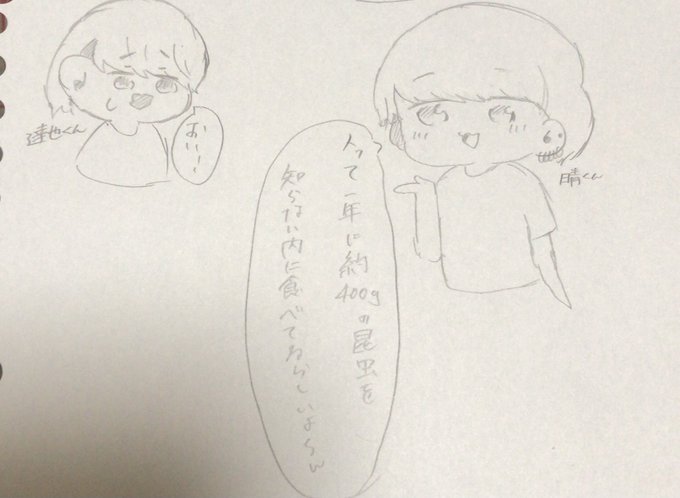 人って一年に約400gの昆虫を
知らない内に食べてるらしいよ〜ん
晴くん
おい〜
達也くん